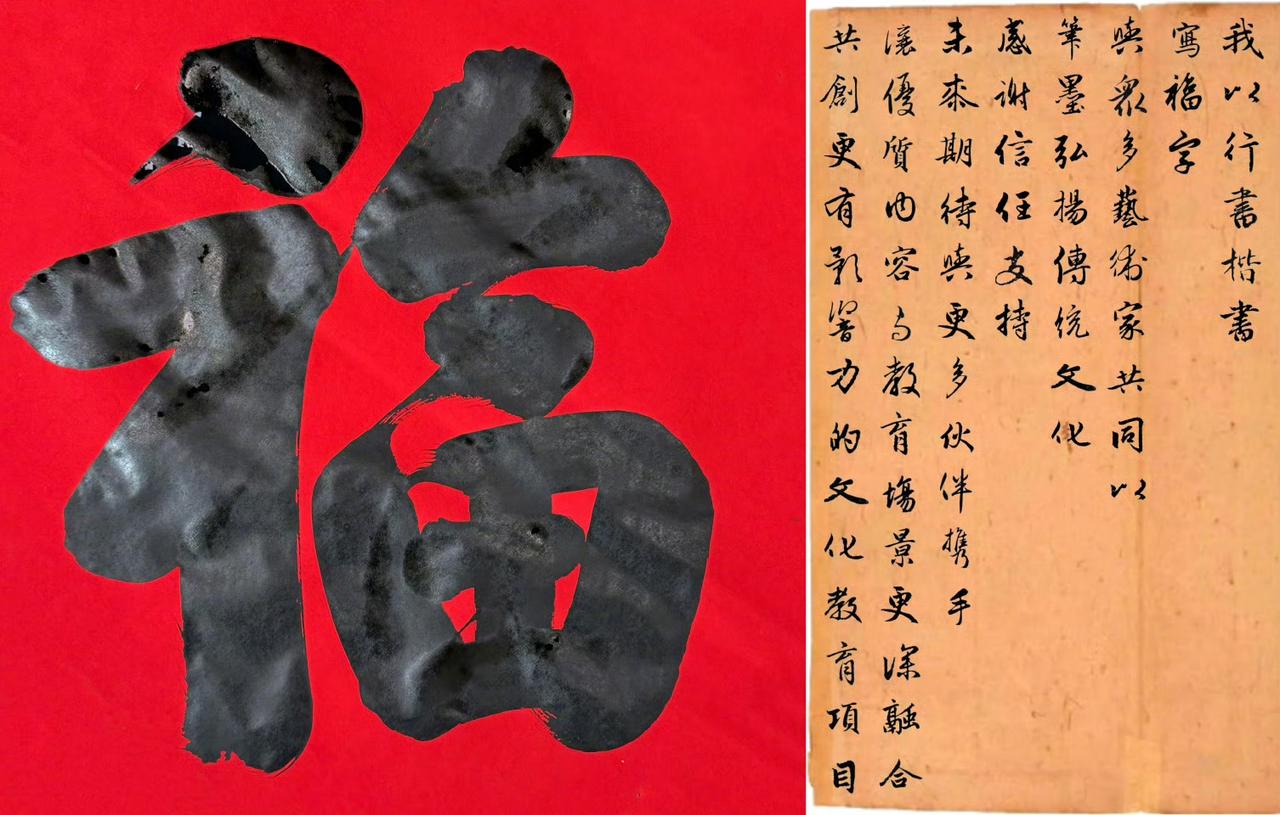 福
我以行書楷書
寫福字
與眾多藝術家共同以
筆墨弘揚傳統文化
感謝信任支持
未來期待與更多伙伴携手
讓優質內容與教育場景更深融合
共創更有影響力的文化教育項目